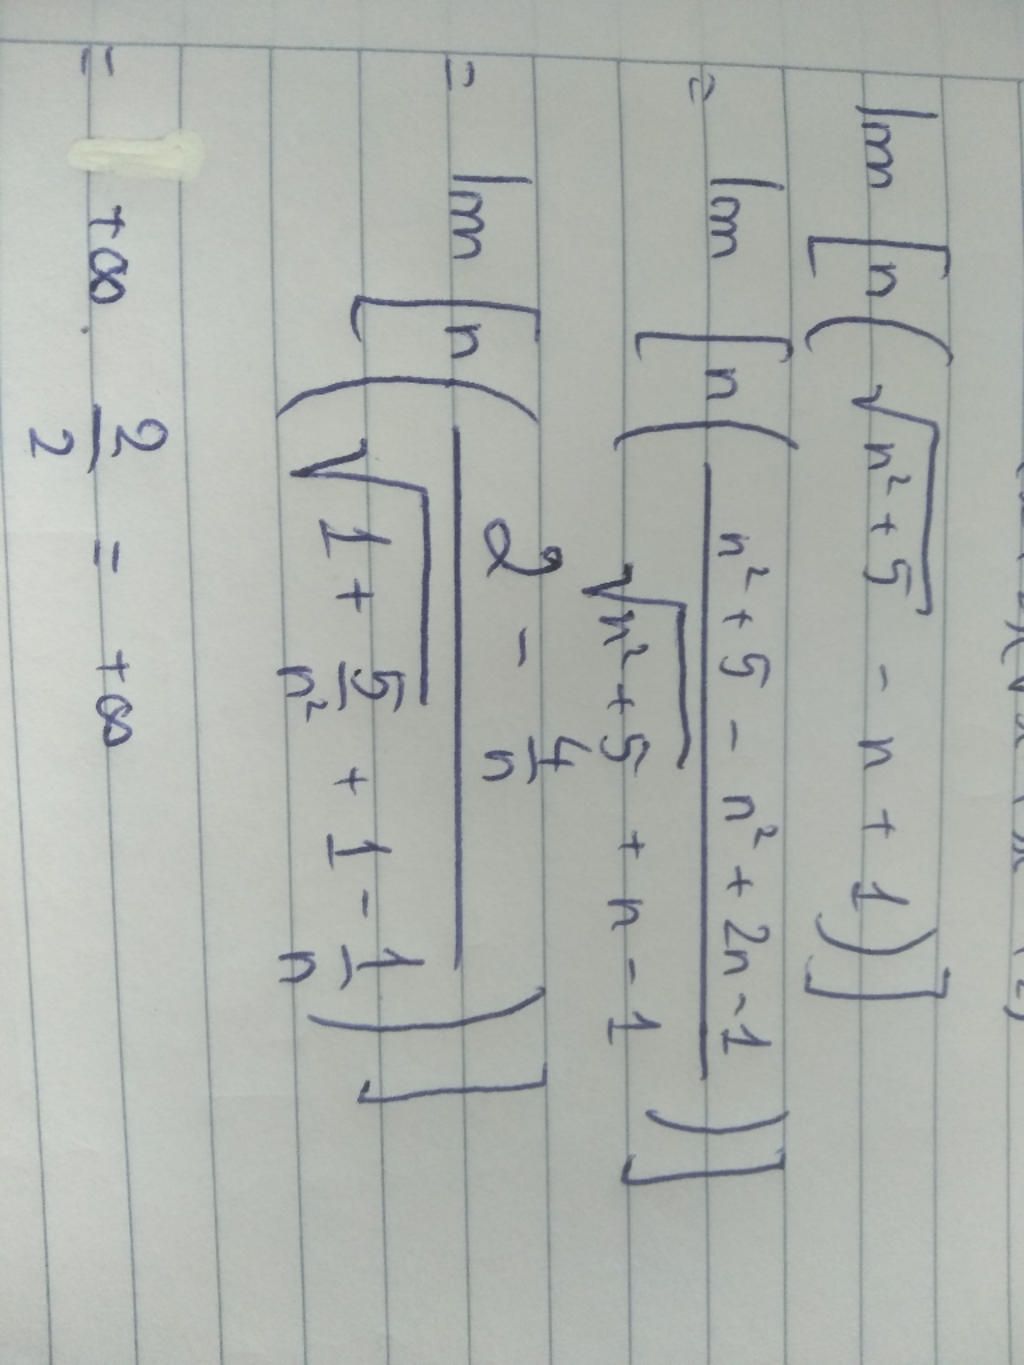 lim [n(√(n² + 5) - n + 1)]
= lim [n((n² + 5 - n² + 2n - 1)/(√(n² + 5) + n - 1))]
= lim [n((2 - 4/n)/(√(1 + 5/n²) + 1 - 1/n))]
= +∞ . 2/2 = +∞